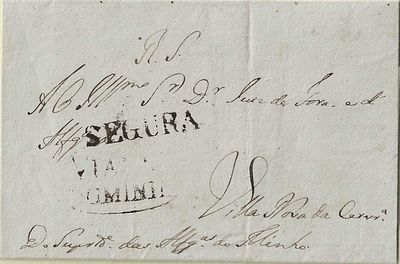 R. S.
Ao Illmo Sr. Dr. Juiz de Fora, e da
Alfga
SEGURA
VIA
CAMINHA
Villa Nova da Cervra
Do Superte. das Alfgas do Minho.